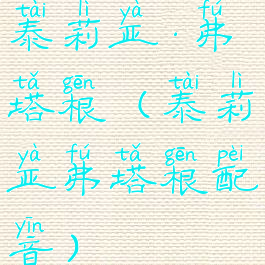 tài lì yà fú
泰莉亚·弗
tǎ gēn tài lì
塔根（泰莉
yà fú tǎ gēn pèi
亚弗塔根配
yīn
音）